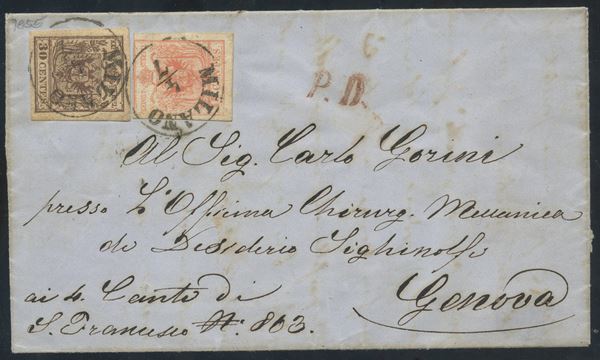 1855
30 CENTES
MILANO
MILANO
P. D.
Al Sig. Carlo Gorini
presso L'Officina Chirurg. Meccanica
di Desiderio Sighinolfi
Genova
ai 4. Canti di
S. Francesco N.º 803.